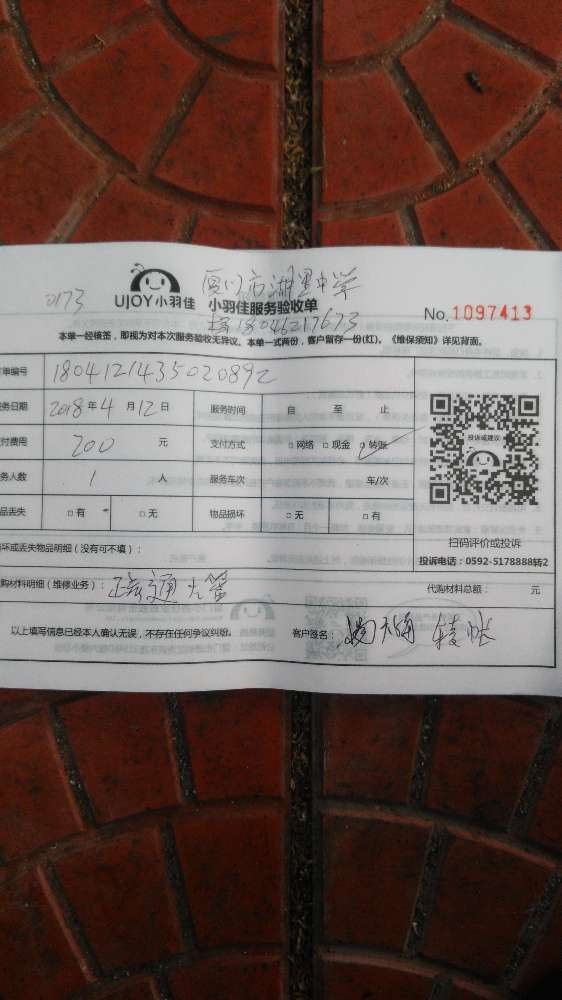 厦门市湖里中学
0173 UJOY小羽佳 小羽佳服务验收单
No.1097413
18046217673
本单一经核签，即视为对本次服务验收无异议。本单一式两份，客户留存一份(红)。《维保须知》详见背面。
单编号 1804121435020892
务日期 2018年4月12日 服务时间 自 至 止
付费用 200 元 支付方式 □网络 □现金 □转账
投诉或建议
务人数 1 人 服务车次 车/次
品丢失 □有 □无 物品损坏 □无 □有
扫码评价或投诉
坏或丢失物品明细（没有可不填）：
投诉电话：0592-5178888转2
购材料明细（维修业务）： 通大管 代购材料总额： 元
以上填写信息已经本人确认无误，不存在任何争议纠纷。 客户签名： 转账